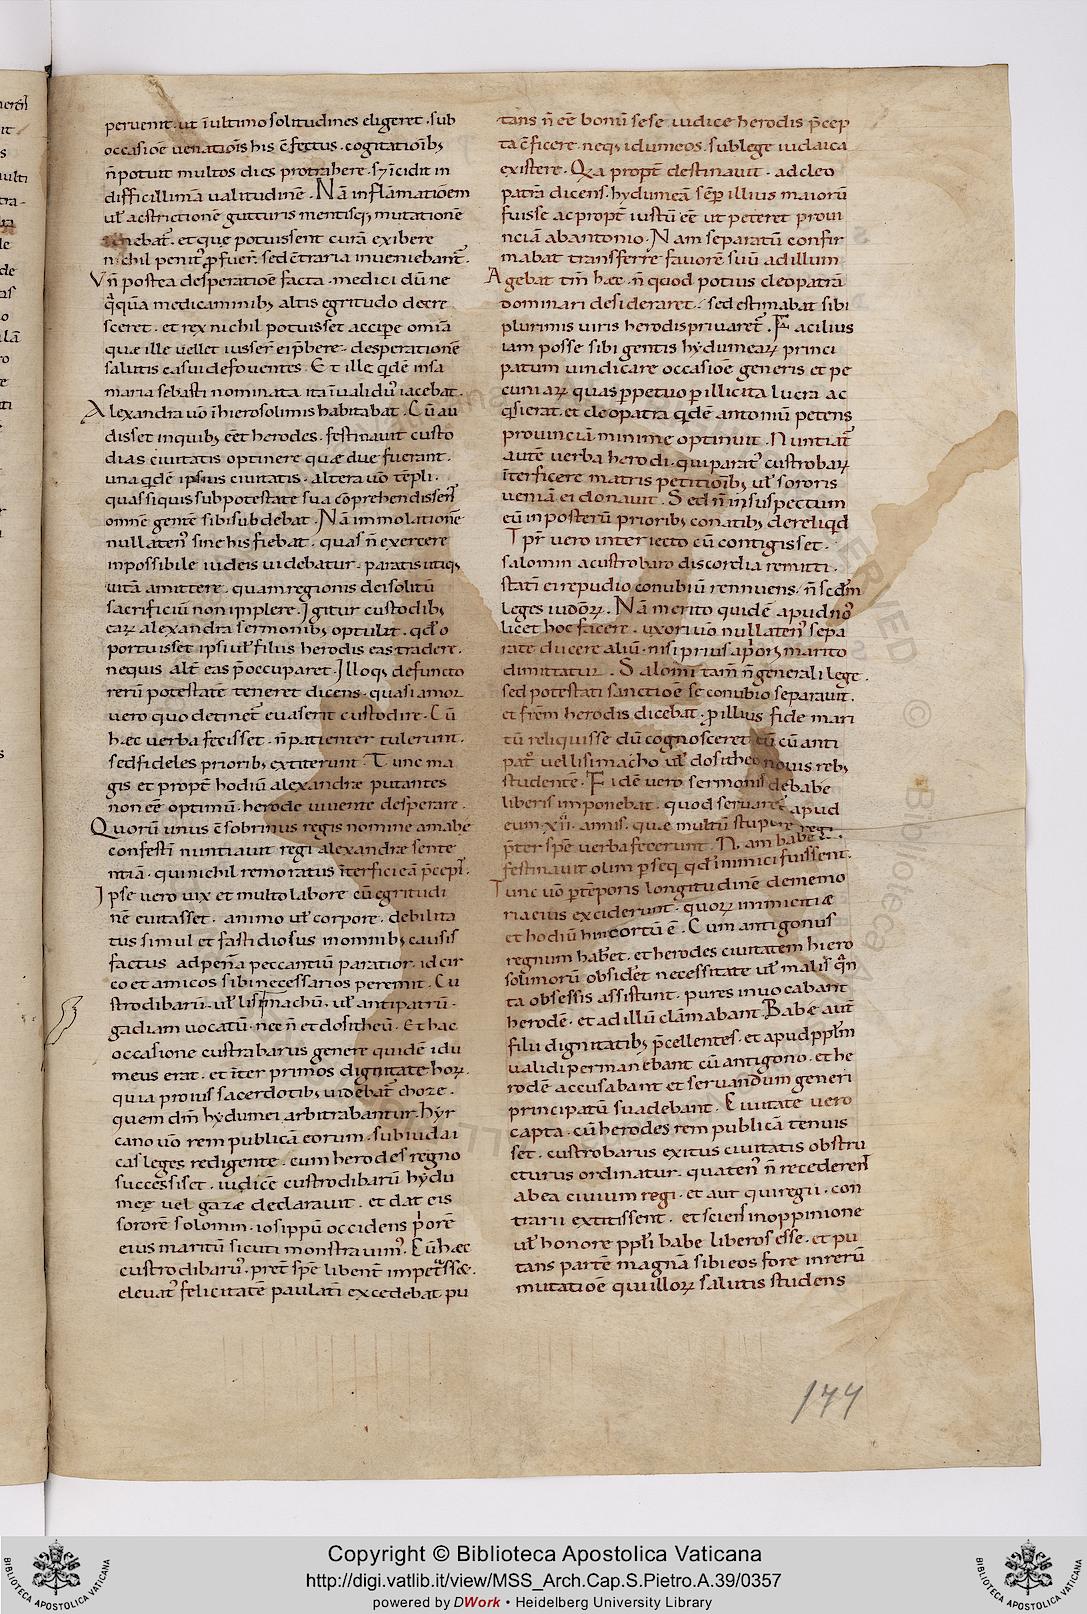 peruenit. ut īultimo solitudines eligeret. sub
occasiōe uenatiōis his ēfectus. cogitatiōib;
n̄ potuit multos dies protrahere. s; īcidit in
difficillimā ualitudinē. Nā inflāmatiōem
ul̕ acstrictionē gutturis mentisq; mutationē
et que potuissent curā exibere
nichil penit᾽ ꝓfuer̄. sed ēt̄raria inueniebant᾽.
Vn̄ postea desperatiōe facta. medici dū ne
q̄quā medicaminib; altis egritudo decre
sceret. et rex nichil potuisset accipe omīa
quæ ille uellet iusser̄ ei p̄bere. desperationē
salutis casui defouentes. Et ille q̄dē insa
maria sebasti nominata ita īualidu᾽ iacebat.
Alexandra uō ī hierosolimis habitabat. Cū au
disset inquib; ēet herodes. festinauit custo
dias ciuitatis optinere quæ due fuerant.
una q̄dē ipsius ciuitatis. altera uō tēpli.
quas siquis subpotestate sua cōprehendissen̄
omnē gentē sibi subdebat. Nā immolationē
nullaten᾽ sine his fiebat. quas n̄ exercere
inpossibile iudeis uidebatur. paratis utiq;
uitā amittere. quam regionis dei solitū
sacrificiū non implere. Igitur custodib;
earꝝ alexandra sermonib; optulit. qd̕ o
portuisset ipsi ul̕ filiis herodis eas tradere.
nequis alt̄ eas p̄occuparet. Illoq; defuncto
rerū potestatē teneret dicens. quasi amor
uero quo detinet᾽ euaserit custodire. Cū
hæc uerba fecisset. n̄ patienter tulerunt.
sed fideles priorib; extiterunt. Tunc ma
gis et propt̄ hodiū alexandræ putantes
non eē optimū. herode uiuente desperare.
Quorū unus ēsobrinus regis nomine amabe
confestī nuntiauit regi alexandræ sente
ntiā. qui nichil remoratus īterfici eā p̄cepi᾽.
Ipse uero uix et multo labore cū egritudi
nē euitasset. animo ul̕ corpore. debilita
tus simul et fastidiosus inomnib; causis
factus ad pēna peccantiū paratior. idcir
co et amicos sibi necessarios peremit. Cu
strodibarū. ul̕ lisimachū. ul̕ antipatrū.
gadiam uocatū. nec n̄ et dositheū. Et hac
occasione custrabarus genere quidē idu
meus erat. et īter primos dignitate horꝝ.
quia proius sacerdotib; uidebat᾽ choze.
quem dm̄ hydumei arbitrabantur. hyr
cano uō rem publicā eorum. sub iudai
cas leges redigente. cum herodes regno
successiset. iudice custrodibarū hydu
meę uel gazæ declarauit. et dat eis
sororē solomin. iosippū occidens p̄orē
eius maritū sicuti monstrauim᾽. Cū hæc
custrodibaru᾽. pret̄ spē libent̄ impetrasset.
eleuat᾽ felicitatē paulatī excedebat pu
tans n̄ eē bonū sese iudice herodis p̄cep
ta ēficere. neq; idumeos. sub lege iudaica
existere. Qua propt̄ destinauit. ad cleo
patrā dicens. hydumeā sēp̄ illius maiorū
fuisse ac propt̄ iustū eē ut peteret proui
nciā ab antonio. Nam separatū confir
mabat transferre fauorē suū ad illum
Agebat tm̄ hæc. n̄ quod potius cleopatrā
dominari desideraret. sed estimabat sibi
plurimis uiris herodis priuaret᾽. Facilius
iam posse sibi gentis hydumearꝝ princi
patum uindicare occasiōe generis et pe
cuniarꝝ quas p̱petuo p̱ illicita lucra ac
q̄sierat. et cleopatra q̄dē antoniū petens
prouinciā minime optinuit. Nuntiat᾽
autē uerba herodi. qui parat᾽ custrobarꝝ
īterficere matris petitiōib; ul̕ sororis
ueniā ei donauit. Sed n̄ insuspectum
eū inposterū priorib; conatib; dereliq̄d
Tpr̄ uero interiecto cū contigisset.
salomin a custrobaro discordia remitti.
statī ei repudio conubiū rennuens. n̄ scdm̄
leges iudeorꝝ. Nā merito quidē apud nos
licet hoc facere. uxori uō nullaten᾽ sepa
rate ducere aliū. nisi prius ap̱orē marito
dimittatur. Salomī tam̄ n̄ generali lege.
sed potestati sanctioē se conubio separauit.
et frēm herodis dicebat. p̱ illius fide mari
tū reliquisse dū cognosceret eū cū anti
pat᾽ uel lisimacho ul̕ dositheo nouis reb;
studentē. Fidē uero sermonis debabe
liberis imponebat. quod seruaret᾽ apud
eum. xii. annis. quæ multū stupure regi.
p̄ter spē uerba fecerunt. Nam babe
festinauit olim p̱seq̄ qd̕ inimici fuissent.
Tunc uō p̱ tēporis longitudinē dememo
ria eius exciderunt. quorꝝ inimicitiæ
et hodiū hinc ortū ē. Cum antigonus
regnum habet. et herodes ciuitatem hiero
solimorū obsidet necessitate ul̕ malis q̄n
ta obsessis assistunt. pures inuocabant
herodē. et ad illū clāmabant. Babe aut̄
filii dignitatib; p̄cellentes. et apud ppl̄m
ualidi permanebant cū antigono. et he
rodē accusabant et seruandum generi
principatū suadebant. Ciuitate uero
capta. cū herodes rem publicā tenuis
set. custrobarus exitus ciuitatis obstru
cturus ordinatur. quaten᾽ n̄ recederent
ab ea ciuium regi. et aut qui regii. con
trarii extitissent. et sciens inoppinione
ul̕ honore ppl̄i babe liberos esse. et pu
tans partē magnā sibi eos fore in rerū
mutatiōe qui illorꝝ salutis studens
177
Copyright © Biblioteca Apostolica Vaticana
http://digi.vatlib.it/view/MSS_Arch.Cap.S.Pietro.A.39/0357
powered by DWork • Heidelberg University Library